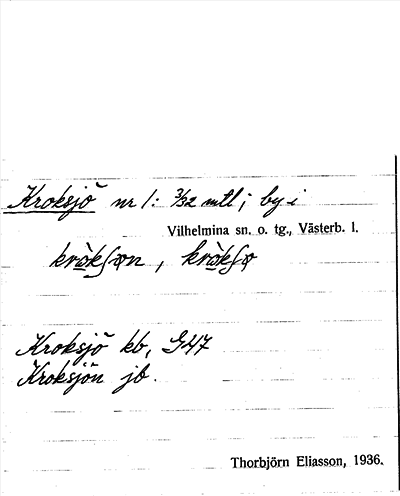 Kroksjö nr 1: 3/32 mtl; by i
Vilhelmina sn. o. tg., Västerb. l.
krò̱kʃøn, krò̱kʃø
Kroksjö kb, G47
Kroksjön jb.
Thorbjörn Eliasson, 1936.